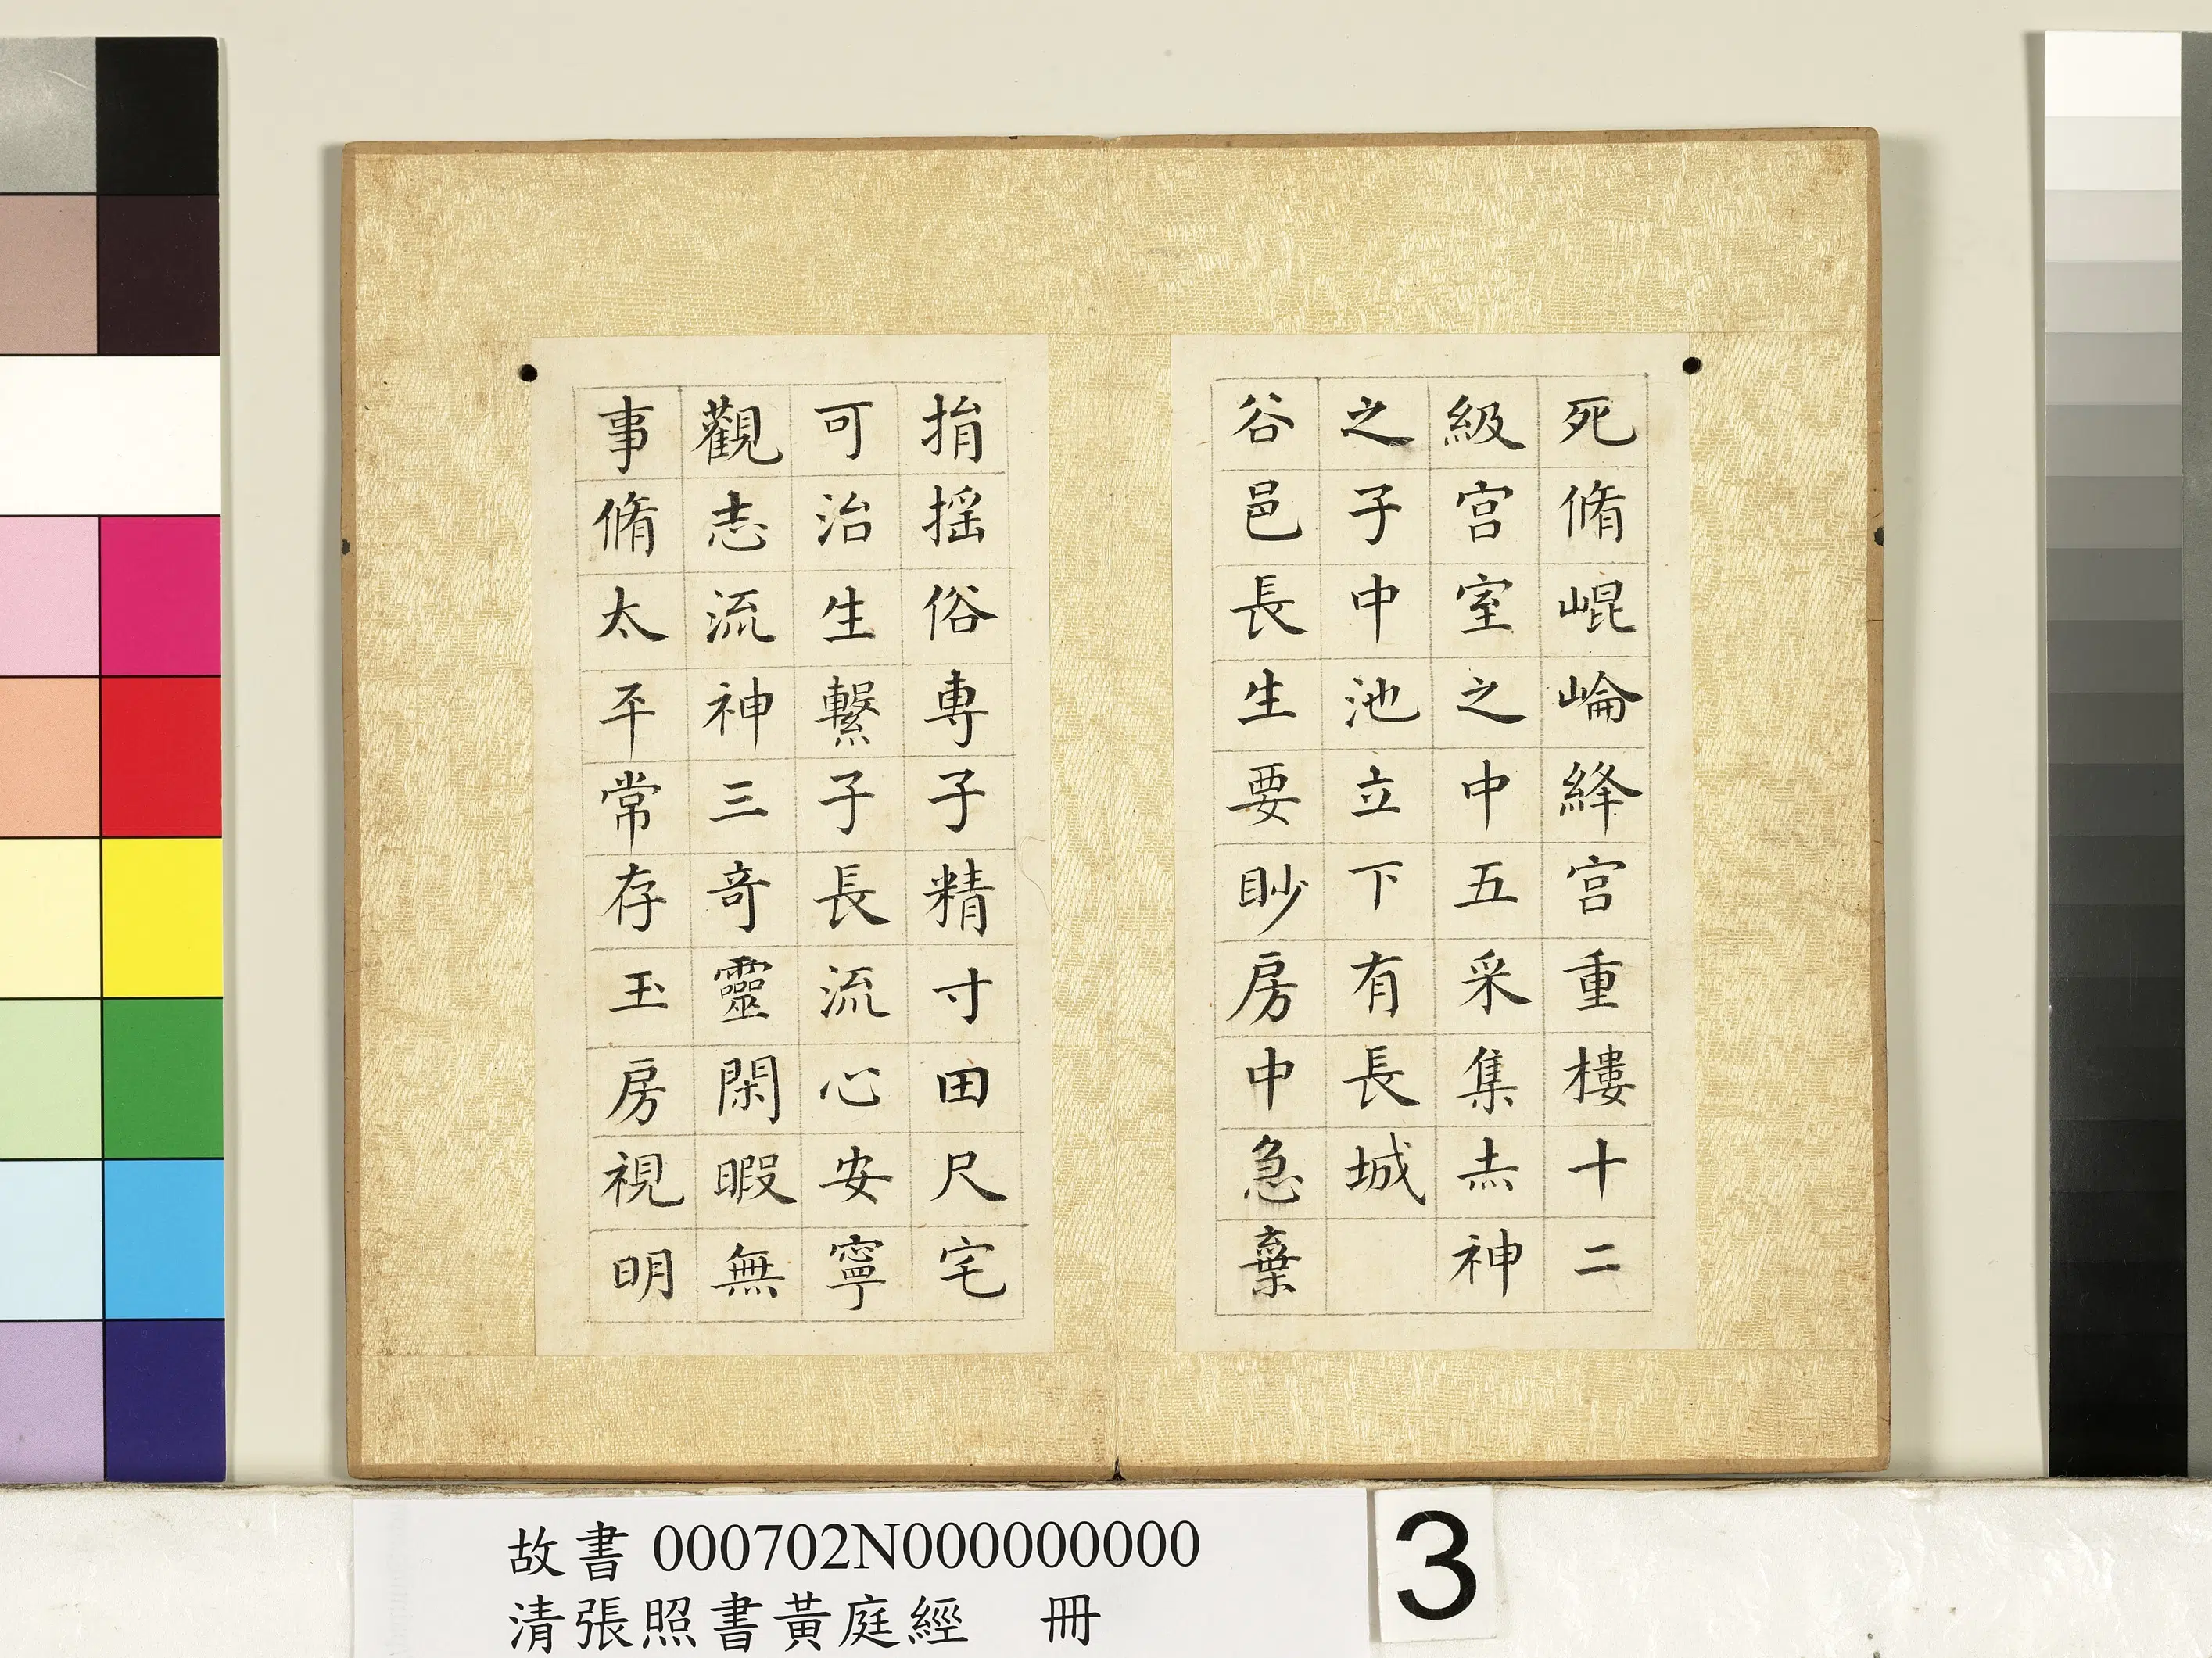 死脩崐崘絳宫重樓十二
級宫室之中五采集𡗕神
之子中池立下有長城
谷邑長生要眇房中急棄
捐揺俗專子精寸田尺宅
可治生繫子長流心安寧
觀志流神三奇靈閑暇無
事脩太平常存玉房視明
故書 000702N000000000
清張照書黃庭經　冊
3